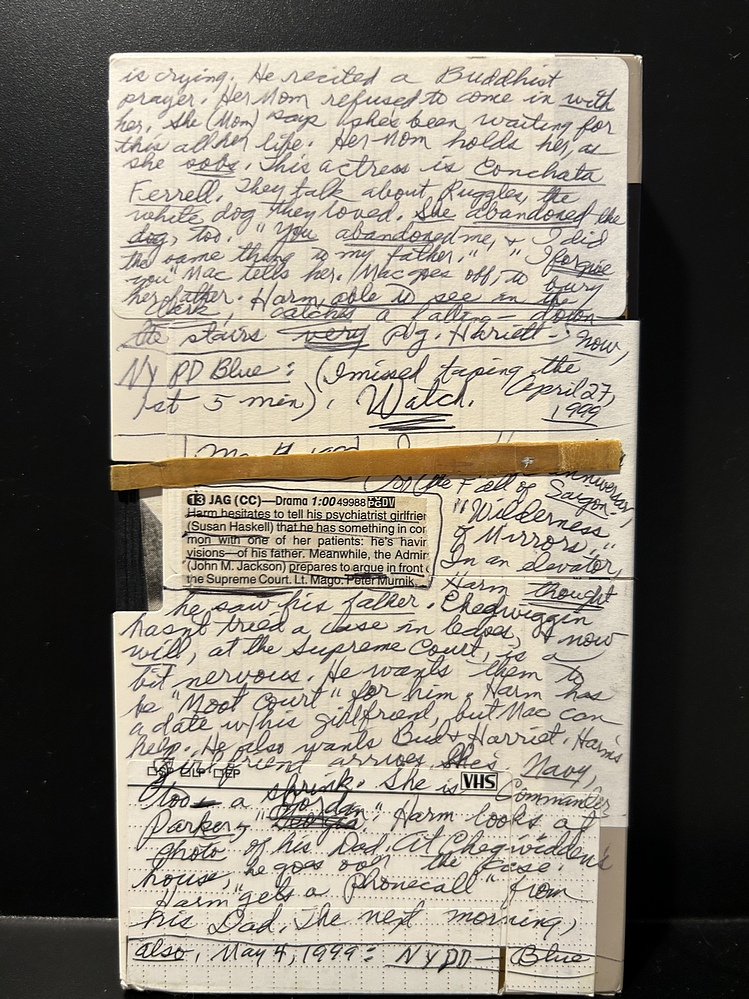 is crying. He recited a Buddhist
prayer. Her Mom refused to come in with
her. She (Mom) says she's been waiting for
this all her life. Her Mom holds her, as
she sobs. This actress is Conchata
Ferrell. They talk about Ruggles, the
white dog they loved. She abandoned the
dog, too. "You abandoned me, & I did
the same thing to my father." "I forgive
you" Mac tells her. Mac goes off, to bury
her father. Harm, able to see in the
dark, catches a falling - down
the stairs very pg. Hariett - now,
NYPD Blue: (I missed taping the
1st 5 min). Watch. April 27,
1999
for the Fall of Saigon
13 JAG (CC)—Drama 1:00 49988
Harm hesitates to tell his psychiatrist girlfrien
(Susan Haskell) that he has something in com
mon with one of her patients: he's havin
visions—of his father. Meanwhile, the Admir
(John M. Jackson) prepares to argue in front
the Supreme Court. Lt. Mago: Peter Murnik.
anniversary,
"Wilderness
of Mirrors."
In an elevator,
Harm thought
he saw his father. Chegwiggin
hasn't tried a case in ages, & now
will, at the Supreme Court, is a
bit nervous. He wants them to
be "Moot Court" for him. Harm has
a date w/his girlfriend, but Mac can
help. He also wants Bud & Harriet. Harm's
girlfriend arrives. She's Navy,
SP LP EP
VHS
too - a shrink. She is Commander
Parker, "Jordan". Harm looks at
photo of his Dad. At Chegwidden's
house, he goes over the case.
Harm "gets a phonecall" from
his Dad. The next morning,
also, May 4, 1999: NYPD - Blue